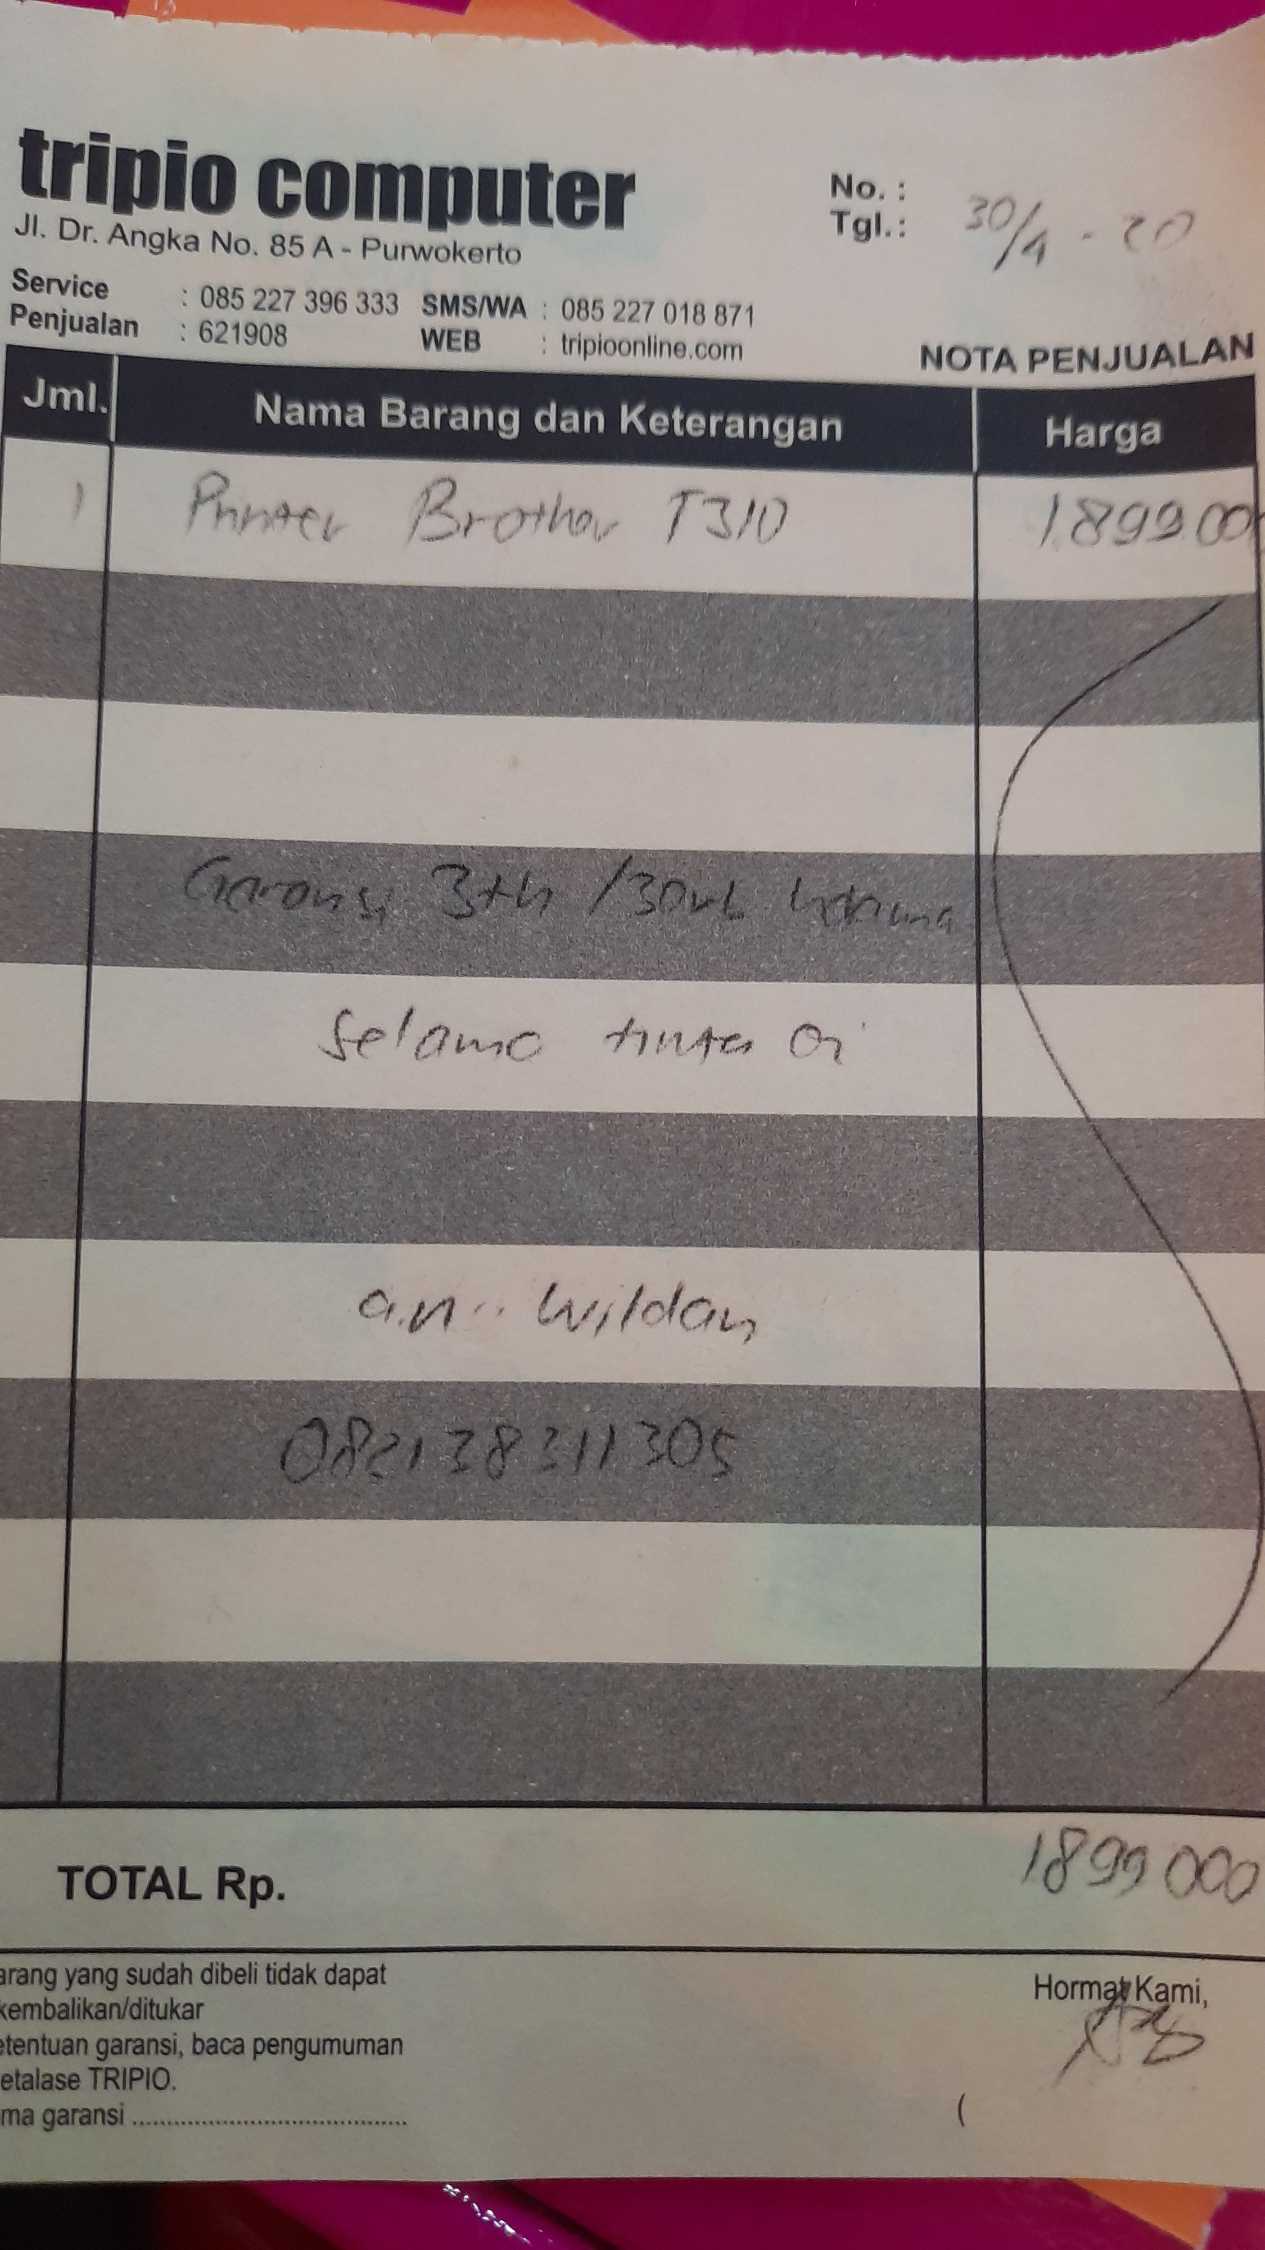 tripio computer
Jl. Dr. Angka No. 85 A - Purwokerto
No. :
Tgl.: 30/4 - 20
Service : 085 227 396 333 SMS/WA : 085 227 018 871
Penjualan : 621908 WEB : tripioonline.com
NOTA PENJUALAN
Jml. Nama Barang dan Keterangan Harga
1 Printer Brother T310 1.899.000
Garansi 3th /30rb
selama tinta ori
a.n.. Wildan
082138311305
TOTAL Rp. 1899 000
arang yang sudah dibeli tidak dapat
kembalikan/ditukar
etentuan garansi, baca pengumuman
etalase TRIPIO.
ma garansi ........................................
Hormat Kami,
(